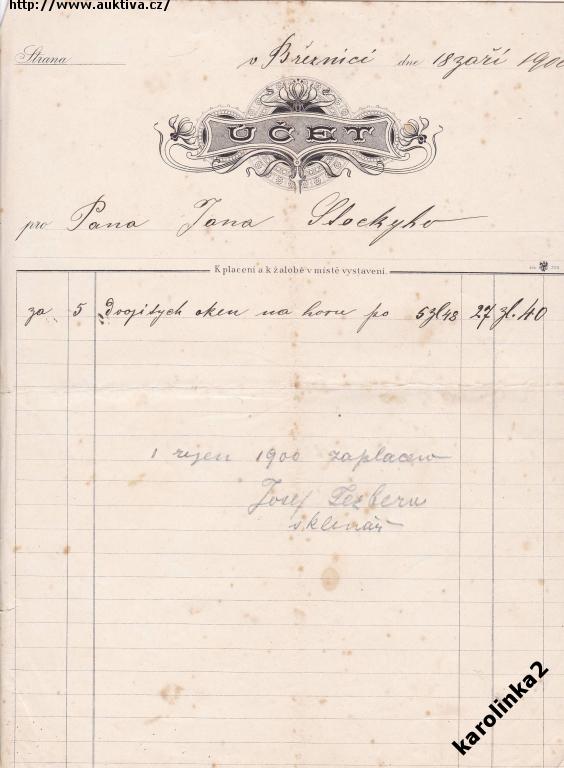 http://www.auktiva.cz/
Strana
v Březnici dne 18 září 1900
ÚČET
pro Pana Jana Stockyho
K placení a k žalobě v místě vystavení.
za 5 dvojitých oken na horu po 5 zl 48 27 zl. 40
1 rijen 1900 zaplaceno
Josef
sklenář
karolinka2